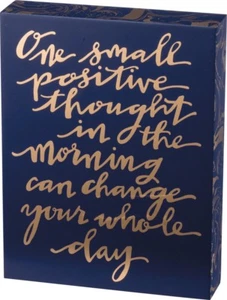 One small
positive
thought
in the
morning
can change
your whole
day